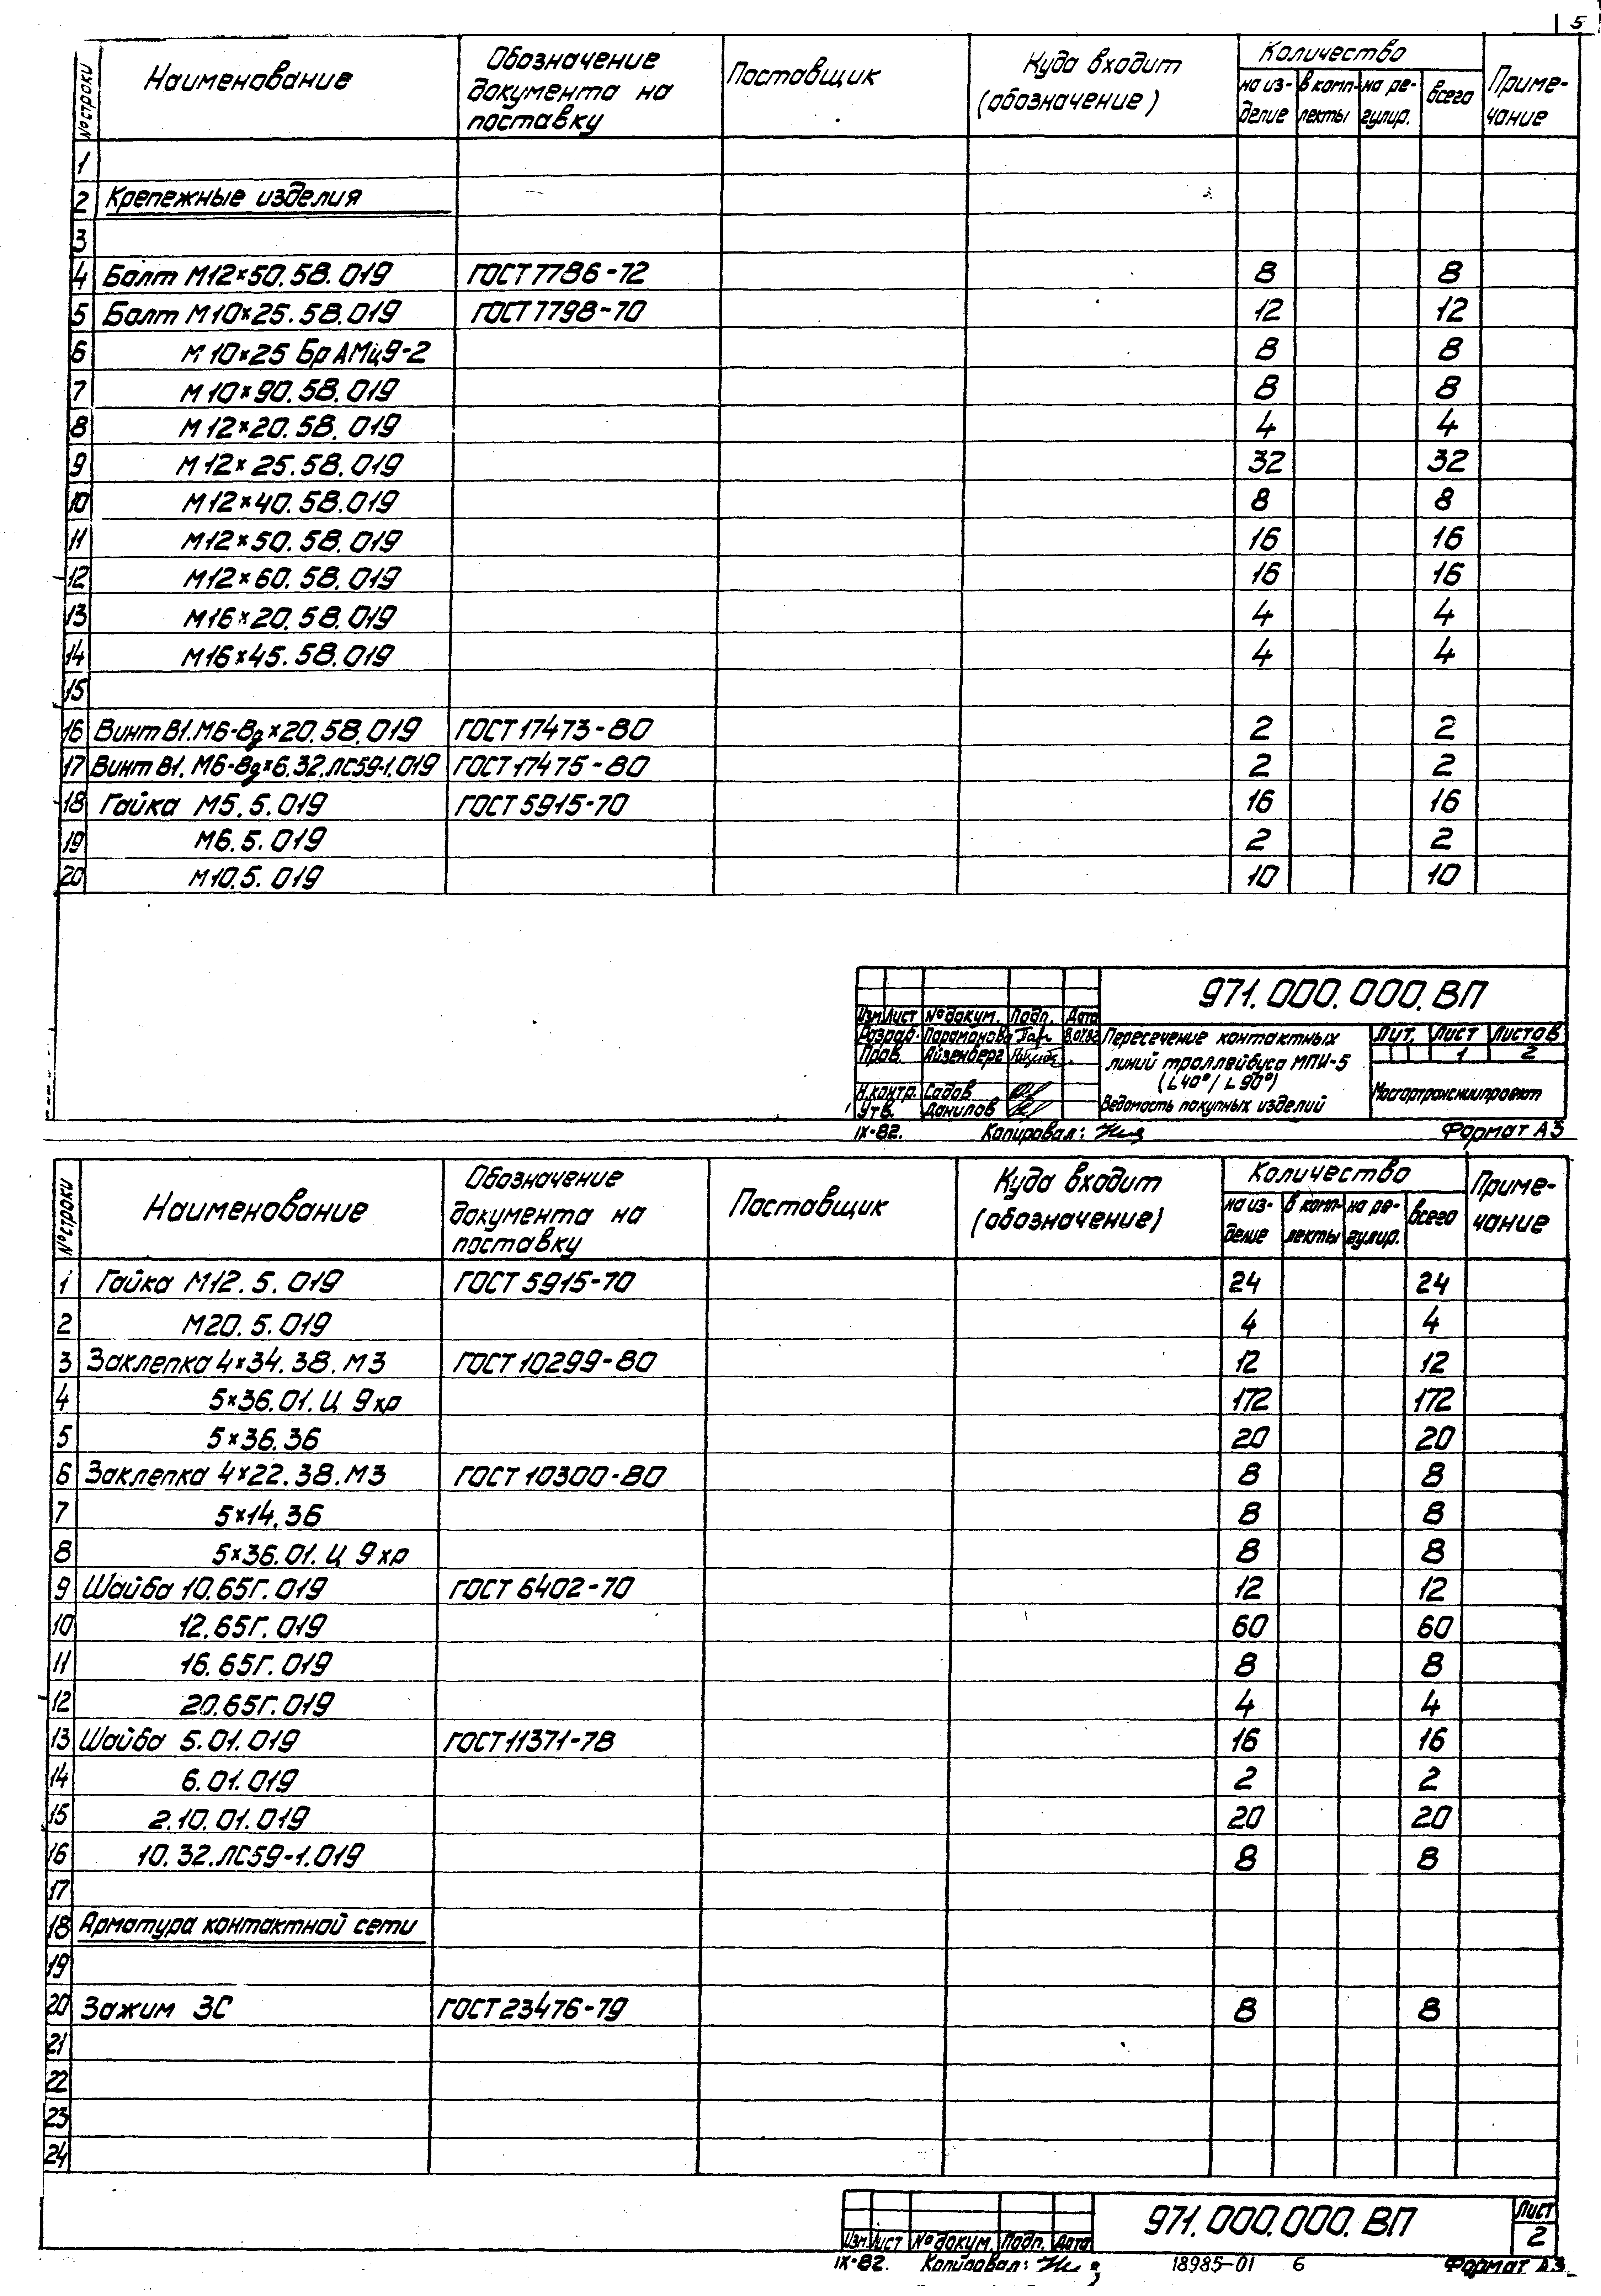 5
№ строки Наименование Обозначение документа на поставку Поставщик Куда входит (обозначение) Количество на изделие в комплекты на регулир. всего Примечание
1
2 Крепежные изделия
3
4 Болт М12×50.58.019 ГОСТ 7786-72 8 8
5 Болт М10×25.58.019 ГОСТ 7798-70 12 12
6 М10×25 БрАМц9-2 8 8
7 М10×90.58.019 8 8
8 М12×20.58.019 4 4
9 М12×25.58.019 32 32
10 М12×40.58.019 8 8
11 М12×50.58.019 16 16
12 М12×60.58.019 16 16
13 М16×20.58.019 4 4
14 М16×45.58.019 4 4
15
16 Винт В1.М6-8g×20.58.019 ГОСТ 17473-80 2 2
17 Винт В1.М6-8g×6.32.ЛС59-1.019 ГОСТ 17475-80 2 2
18 Гайка М5.5.019 ГОСТ 5915-70 16 16
19 М6.5.019 2 2
20 М10.5.019 10 10
971.000.000.ВП
Изм Лист № докум. Подп. Дата
Разраб. Парамонова
Пров. Айзенберг
Н.контр. Садов
Утв. Данилов
Пересечение контактных
линий троллейбуса МПИ-5
(∟40°/∟90°)
Ведомость покупных изделий
Лит. Лист Листов
1 2
Мосгортрансниипроект
IX-82. Копировал: Формат А3
№ строки Наименование Обозначение документа на поставку Поставщик Куда входит (обозначение) Количество на изделие в комплекты на регулир. всего Примечание
1 Гайка М12.5.019 ГОСТ 5915-70 24 24
2 М20.5.019 4 4
3 Заклепка 4×34.38.М3 ГОСТ 10299-80 12 12
4 5×36.01.Ц 9хр 172 172
5 5×36.36 20 20
6 Заклепка 4×22.38.М3 ГОСТ 10300-80 8 8
7 5×14.36 8 8
8 5×36.01.Ц 9хр 8 8
9 Шайба 10.65Г.019 ГОСТ 6402-70 12 12
10 12.65Г.019 60 60
11 16.65Г.019 8 8
12 20.65Г.019 4 4
13 Шайба 5.01.019 ГОСТ 11371-78 16 16
14 6.01.019 2 2
15 2.10.01.019 20 20
16 10.32.ЛС59-1.019 8 8
17
18 Арматура контактной сети
19
20 Зажим ЗС ГОСТ 23476-79 8 8
21
22
23
24
971.000.000.ВП
Лист
2
Изм Лист № докум. Подп. Дата
IX-82. Копировал: 18985-01 6 Формат А3